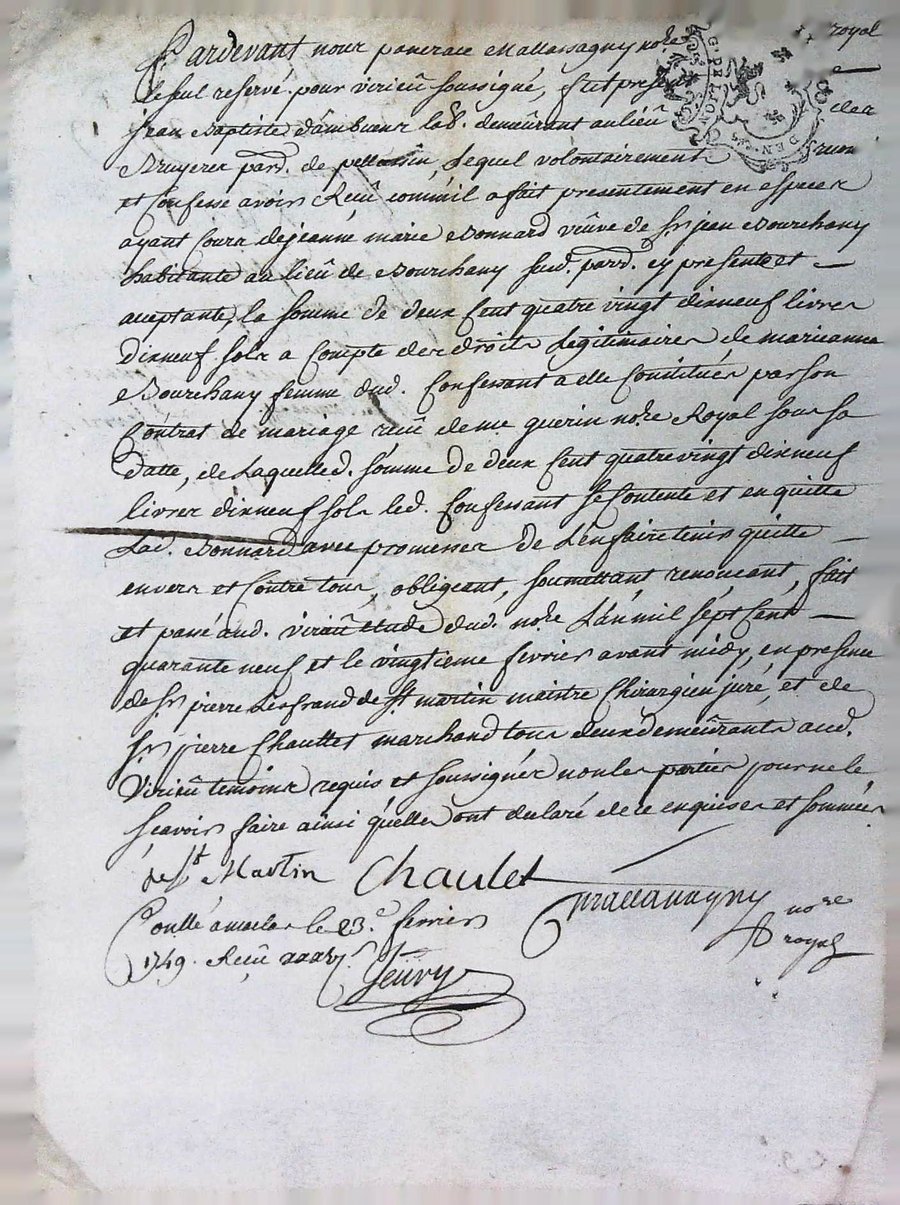 Pardevant nous pancrace Mallassagny no.re royal
le seul reservé pour virieû soussigné, fut pres
Jean Baptiste Dambuent lab. demeûrant au lieû des
Bruyeres par.d de pellussin, Lequel volontairement
et Confesse avoir Reçû comm'il a fait presentement en especes
ayant Cours de jeanne marie Bonnard veûve de Sr. jean Bourchany
habitante au lieû de Bourchany sud. par.d cy presente et
aceptante, la somme de deux Cent quatre vingt dixneuf livres
Dixneuf sols a Compte des droits Legitimaires de marianne
Bourchany femme dud. Confessant a elle Constitués par son
Contrat de mariage reçû de me guerin no.re Royal sous sa
datte, de Laquelled. somme de deux Cent quatrevingt dixneuf
livres dixneuf sols led. Confessant se Contente et en quitte
Lad. Bonnard avec promesses de L'en faire tenir quitte
envers et Contre tous, obligeant, soumettant, renonçant, fait
et passé aud. virieû etude dud. no.re L'an mil sept Cent
quarante neuf et le vingtieme fevrier avant midy, en presence
de Sr. pierre Lesfrand de St. martin maistre Chirurgien juré, et de
Sr. pierre Chaullet marchand tous deux demeûrants aud.
Virieû temoins requis et soussignés non les parties pour ne le
sçavoir faire ainsi qu'elles ont declaré de ce enquises et sommées
de St. Martin Chaulet
Mallassagny no.re royal
Conllé a le 23.e fevrier
1749. Reçû
Jeûry